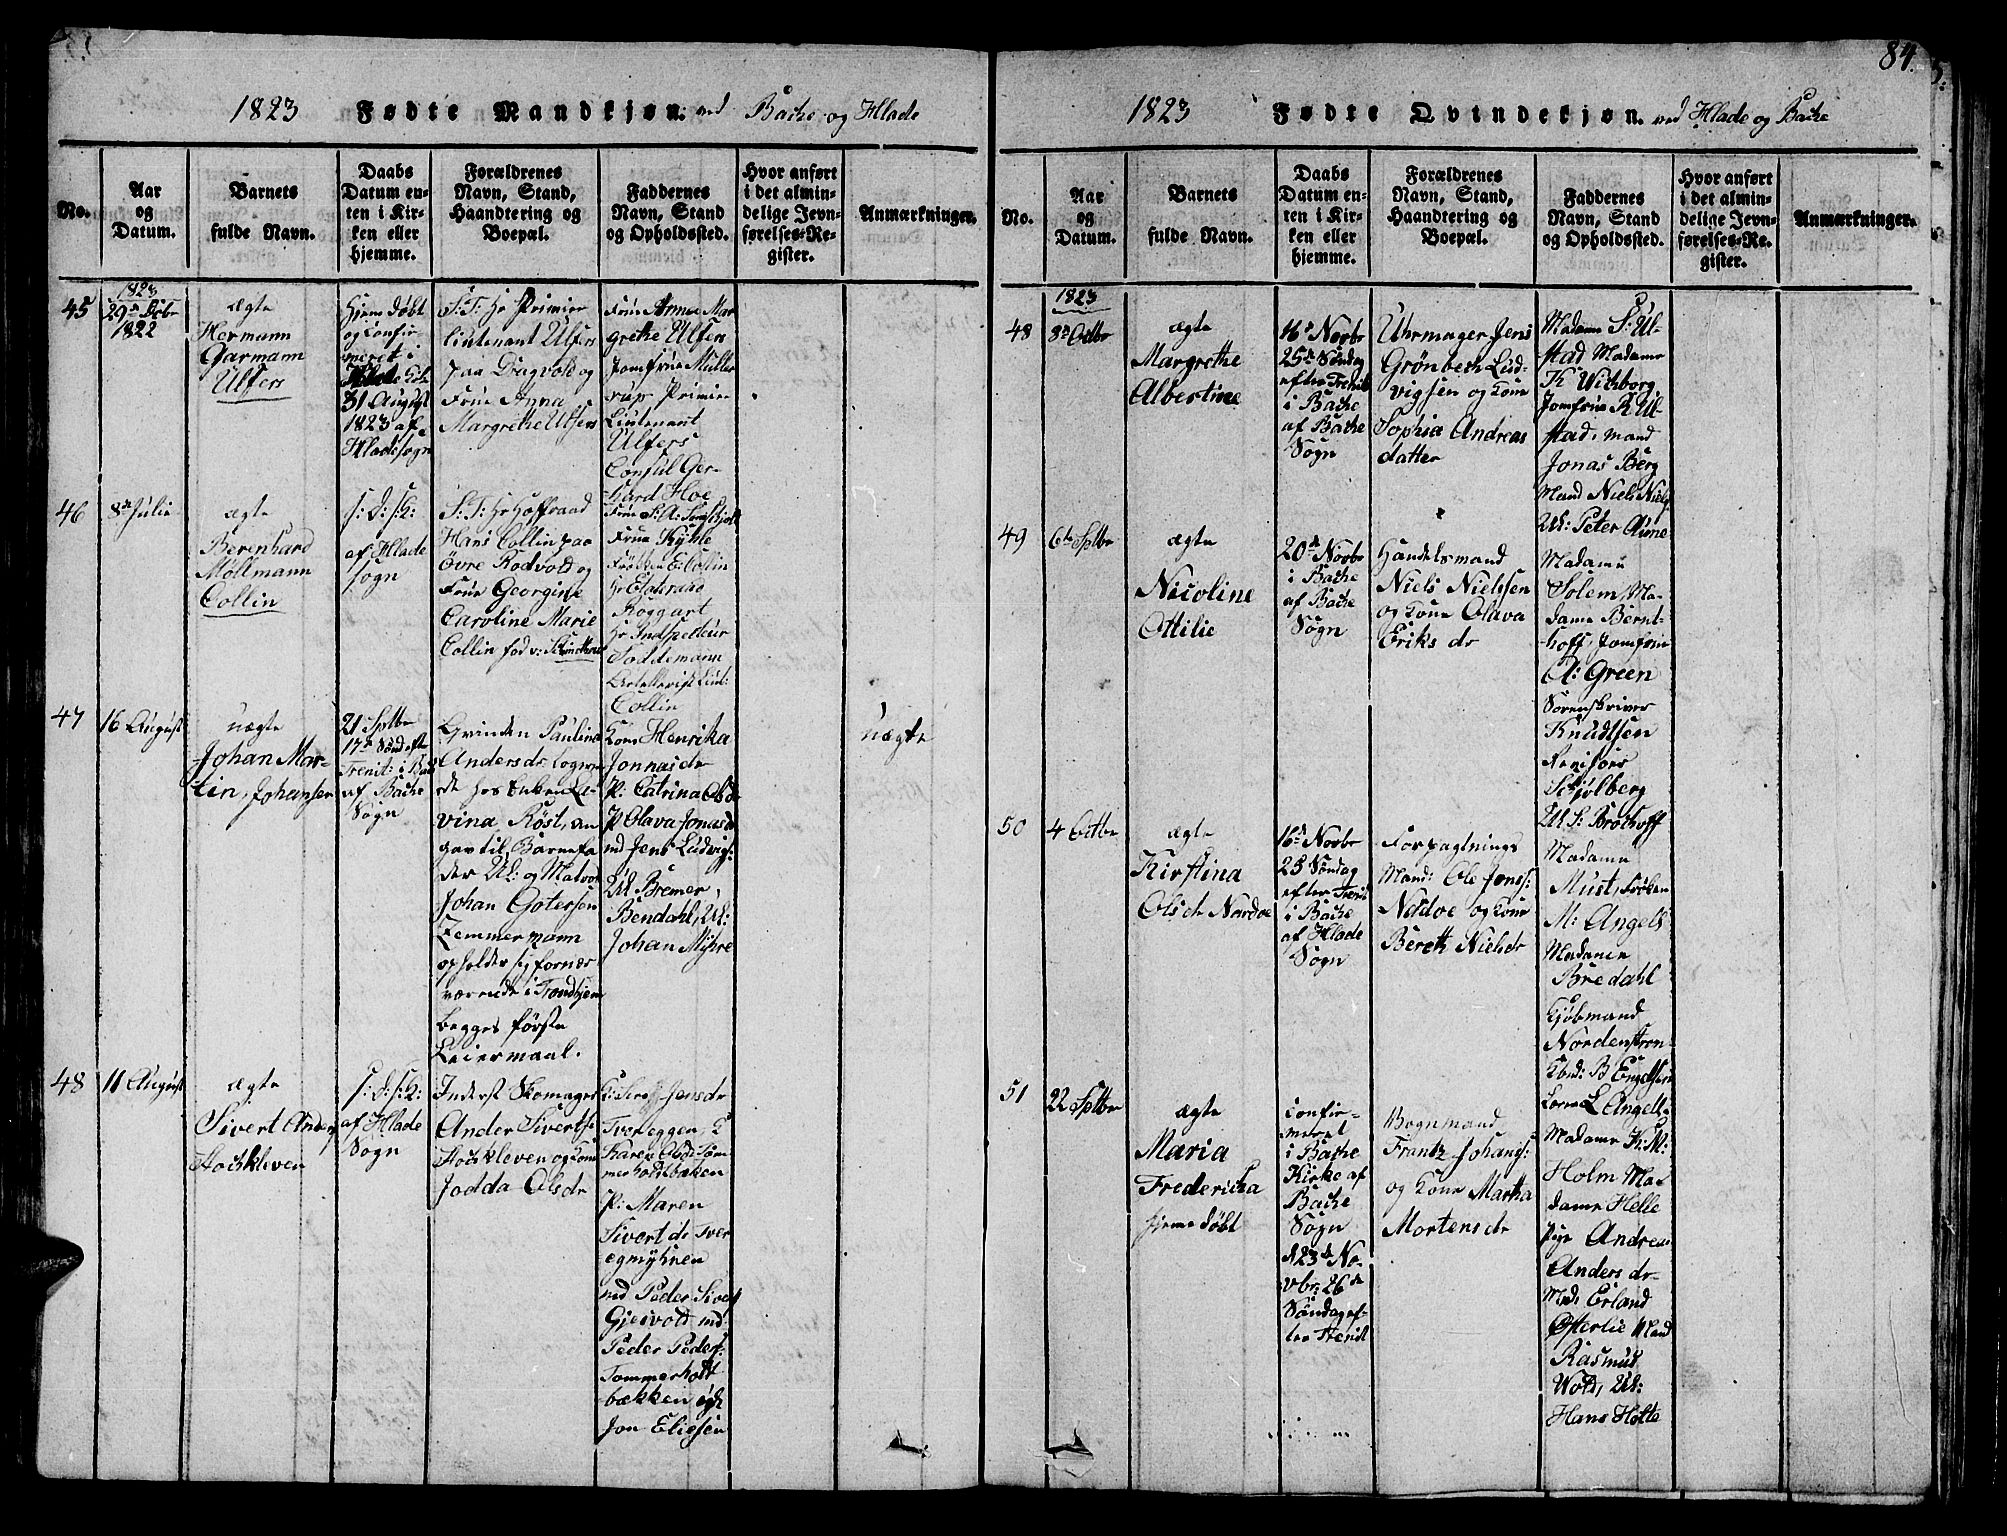 84.
1823 Fødte Mandkjøn. ved Bache og Hlade
No.
Aar
og
Datum.
Barnets
fulde Navn.
Daabs
Datum en-
ten i Kir-
ken eller
hjemme.
Forældrenes
Navn, Stand,
Haandtering og
Boepæl.
Faddernes
Navn, Stand
og Opholdssted.
Hvor anført
i det almin-
delige Jevn-
førelses-Re-
gister.
Anmærkninger.
45
1823
29de
1822
ægte
Hermann
Garmann
Ulfers
hjemdøbt
og Confir-
meret i
31 August
1823 af
Hladesogn
S: T: Hr Primier
Lieutenant Ulfers
paa Dragvold og
Frue Anna
Margrethe Ulfers
Frue Anna Mar
grethe Ulfers
Jomfrue Müller
Primier
Lieutenant
Ulfers
Consul Ger-
hard Hoe
46
8de Julii
ægte
Berenhard
Möllmann
Collin
S: D: S: K:
af Hlade
sogn
S: T: Hr Hoffraad
Hans Collin paa
Övre Rodvold og
Frue Georgine
Caroline Marie
Collin fød v:
Frue
Frøken C: Collin
Hr Etatsraad
Roggart
Hr Indspecteur
Toddemann
Collin
47
16 August
uægte
Johan Mar-
tin, Johansen
21 Sptbr
17de Sønd efter
Trenit: i
af Bache
Sogn
Qvinden Paulina
Andersdr
de hos Enken Le-
vina Röst, an
gav til Barnefa
der Uk: og Matros
Johan Gotersen
Zemmermann
opholder sig fornær
værende i Trondhjem
begges første
Leiermaal.
Kone Henrika
Jonnasdr
P: Catrina Olsdr
P Olava Jonasdr
md Jens Ludvigs:
Uk Bremer
Bendahl, Uk:
Johan Myhre
uægte
48
11 August
ægte
Sivert Anders
Stockleven
S: D: S: K:
af Hlade
Sogn
Inderst Skomager
Ander Siverts
Stockleven og Kone
Jodda Olsdr
Jensdr
Tvereggen, K
Karen Olsdr Tom
merholdtbaken
P: Maren
Sivert dr Tver
egmyhren
md Peder Sivert
Gjesvold md
Peder Peders:
Tommerholt
bækken og
Jon Eliesen
1823 Fødte Qvindekjøn. ved Hlade og Bache
No.
Aar
og
Datum.
Barnets
fulde Navn.
Daabs
Datum en-
ten i Kir-
ken eller
hjemme.
Forældrenes
Navn, Stand,
Haandtering og
Boepæl.
Faddernes
Navn, Stand
og Opholdssted.
Hvor anført
i det almin-
delige Jevn-
førelses-Re-
gister.
Anmærkninger.
1823
48
8de Octbr
ægte
Margrethe
Albertine
16de Novbr
25de Søndag
efter Trenit
i Bache
af Bache
Sogn
Uhrmager Jens
Grønbech Lud-
vigsen og Kone
Sophia Andreas
datter
Madame S: Ul-
stad Madame
K Wichborg
Jomfrue K Ul-
stad, Mand
Jonas Berg
Mand Niels Niels
Uk: Peter Aune
49
6te Sptbr
ægte
Nicoline
Ottilie
20de Novbr
i Bache
af Bache
Sogn
Handelsmand
Niels Nielsen
og Kone Olava
Eriks dr
Madame
Solem, Ma-
dame Bernt-
hoff, Jomfrue
A: Green
Sorenskriver
Knudtsen
Revisor
Schjølberg
Uk S: Brochoff
50
4 Octbr
ægte
Kirstina
Olsdr Nardoe
16de Novbr
25 Søndag
efter Trenit
i Bache
af Hlade
Sogn
Forpagtnings
Mand: Ole Jons:
Nardoe og Kone
Bereth Nielsdr
Madame
Must, Frøken
M: Angell
Madame
Bredahl
Kjøbmand
Nordenstrøm
B Engelsen
L Angell
51
22 Sptbr
ægte
Maria
Fredericha
hjemedøbt
Confir-
meret
i Bache
Kirke af
Bache
Sogn
d 23de No-
vbr: 26de
Søndag ef-
ter Trenit
Bognmand
Frantz Johans:
og Kone Martha
Mortensdr
Madame K: M:
Holm Ma-
dame Helle
Pige Andrea
Anders dr
Md: Erland
Østerlie Mand
Rasmus
Wold, Uk:
Hans Holte